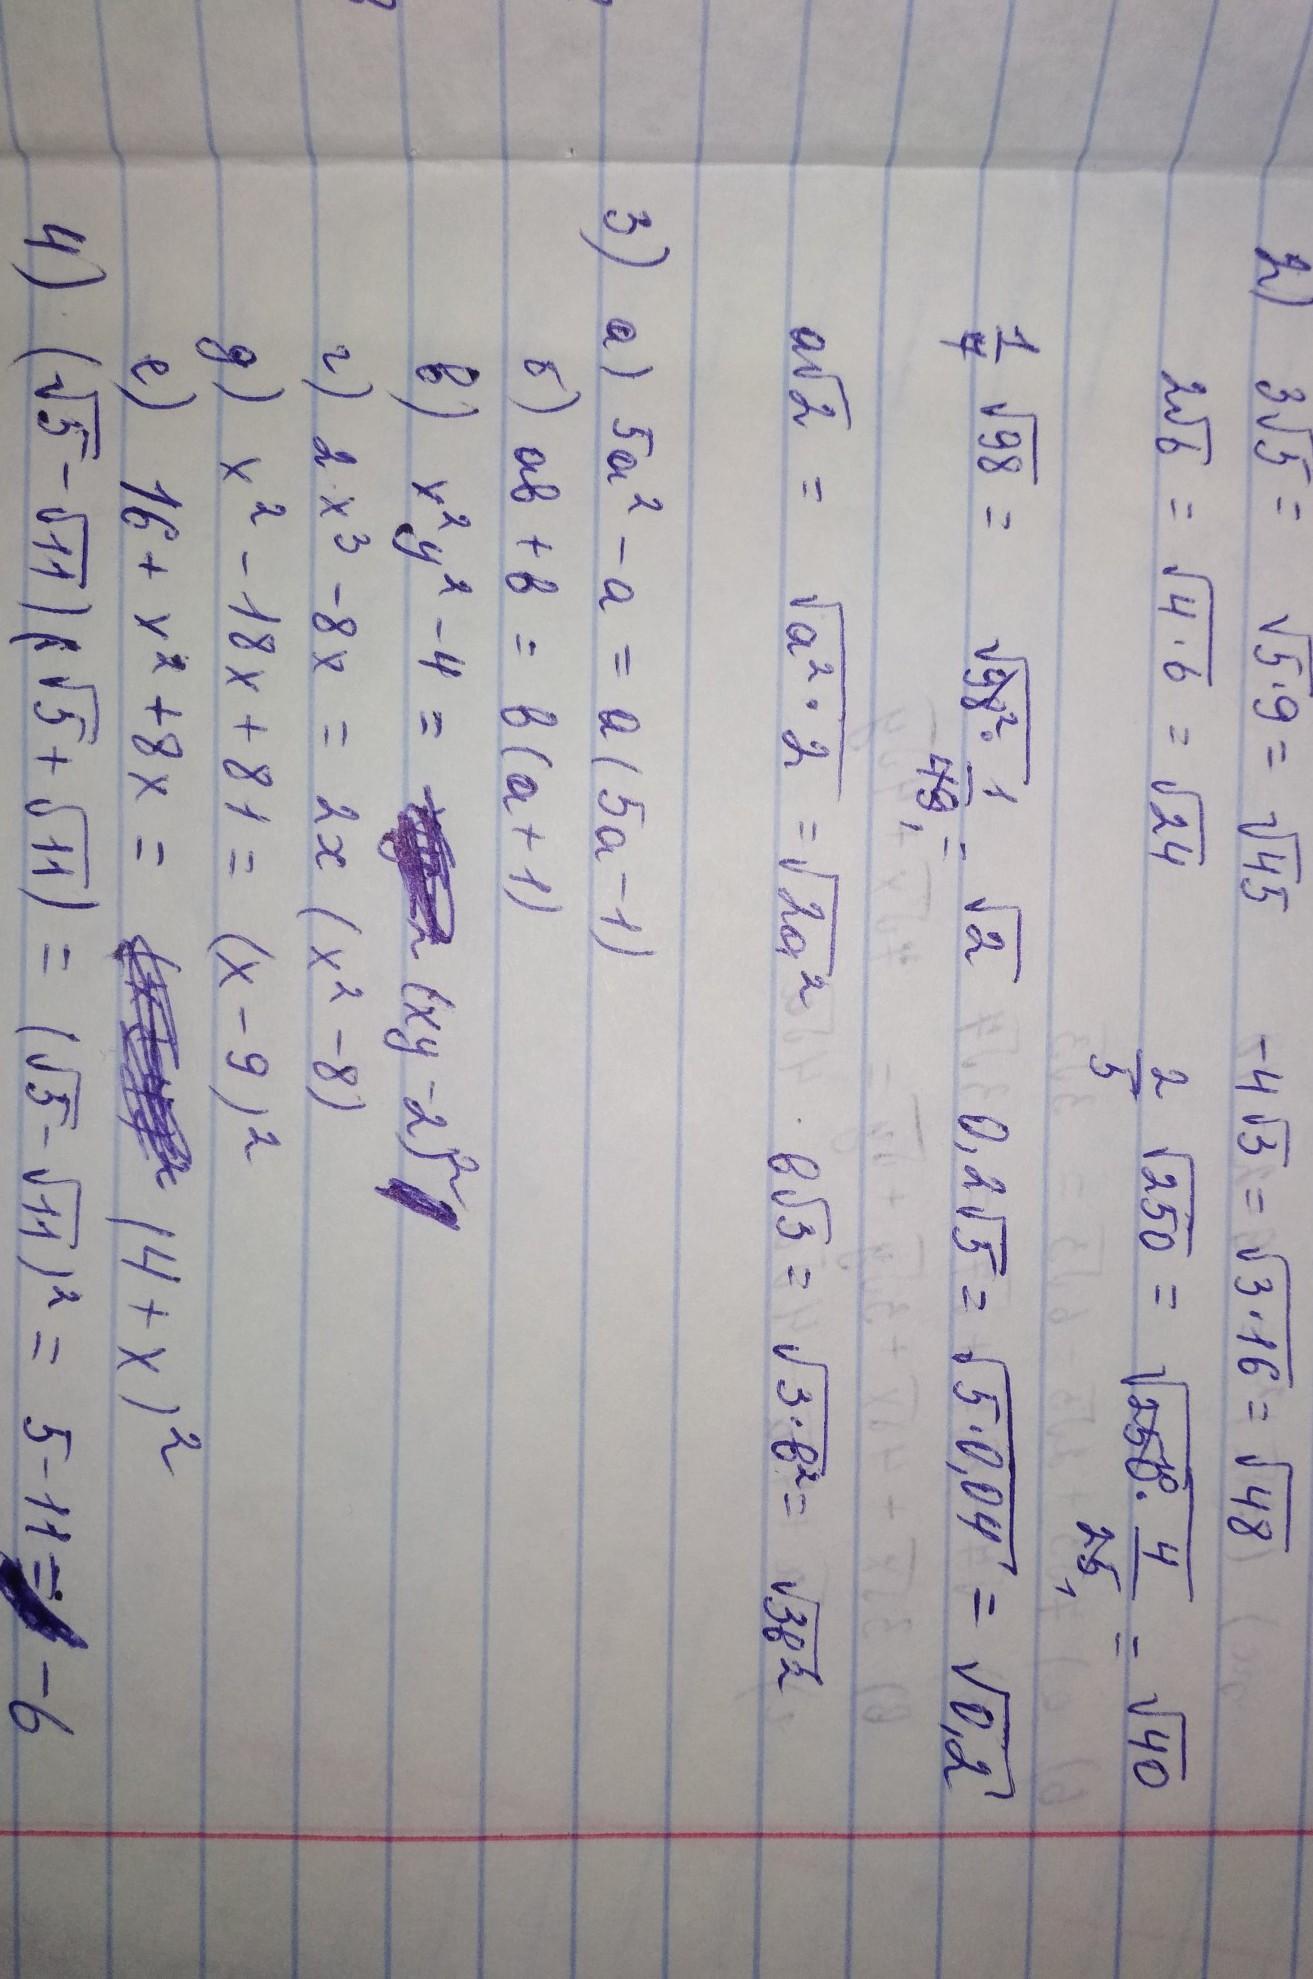 2) 3√5 = √5·9 = √45 -4√3 = √3·16 = √48
2√6 = √4·6 = √24 2/5 √250 = √250¹⁰·4/25₁ = √40
1/7 √98 = √98²·1/49₁ = √2 0,2√5 = √5·0,04 = √0,2
a√2 = √a²·2 = √2a² · в√3 = √3·в² = √3в²
3) а) 5a² - a = a(5a-1)
б) aв + в = в(a+1)
в) x²y² - 4 = (xy-2)²
г) 2x³ - 8x = 2x(x²-8)
д) x² - 18x + 81 = (x-9)²
е) 16 + x² + 8x = (4+x)²
4) (√5 - √11)(√5 + √11) = (√5 - √11)² = 5-11 = -6